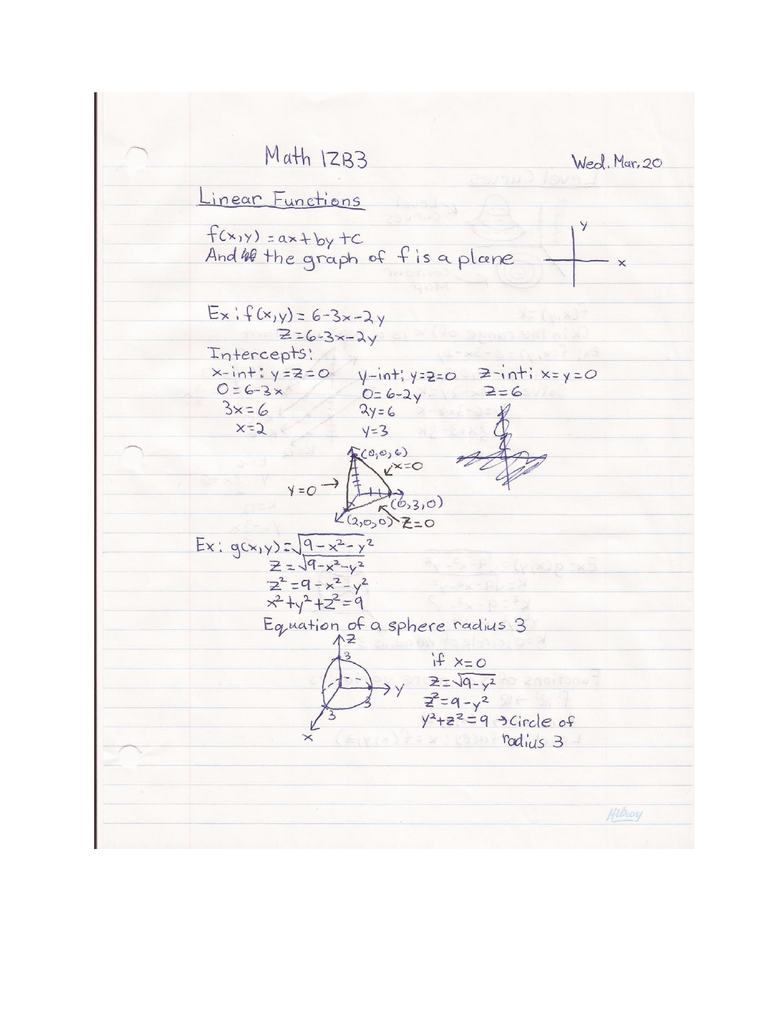 Math 1ZB3
Wed. Mar. 20
Linear Functions
f(x,y) = ax+by+c
And the graph of f is a plane
y
x
Ex: f(x,y) = 6-3x-2y
z=6-3x-2y
Intercepts:
x-int: y=z=0
0=6-3x
3x=6
x=2
y-int: y=z=0
0=6-2y
2y=6
y=3
z-int: x=y=0
z=6
(0,0,6)
x=0
y=0 →
(0,3,0)
(2,0,0)
z=0
Ex: g(x,y)=√9-x²-y²
z=√9-x²-y²
z²=9-x²-y²
x²+y²+z²=9
Equation of a sphere radius 3
z
3
y
3
3
x
if x=0
z=√9-y²
z²=9-y²
y²+z²=9 → Circle of
radius 3
Hilroy